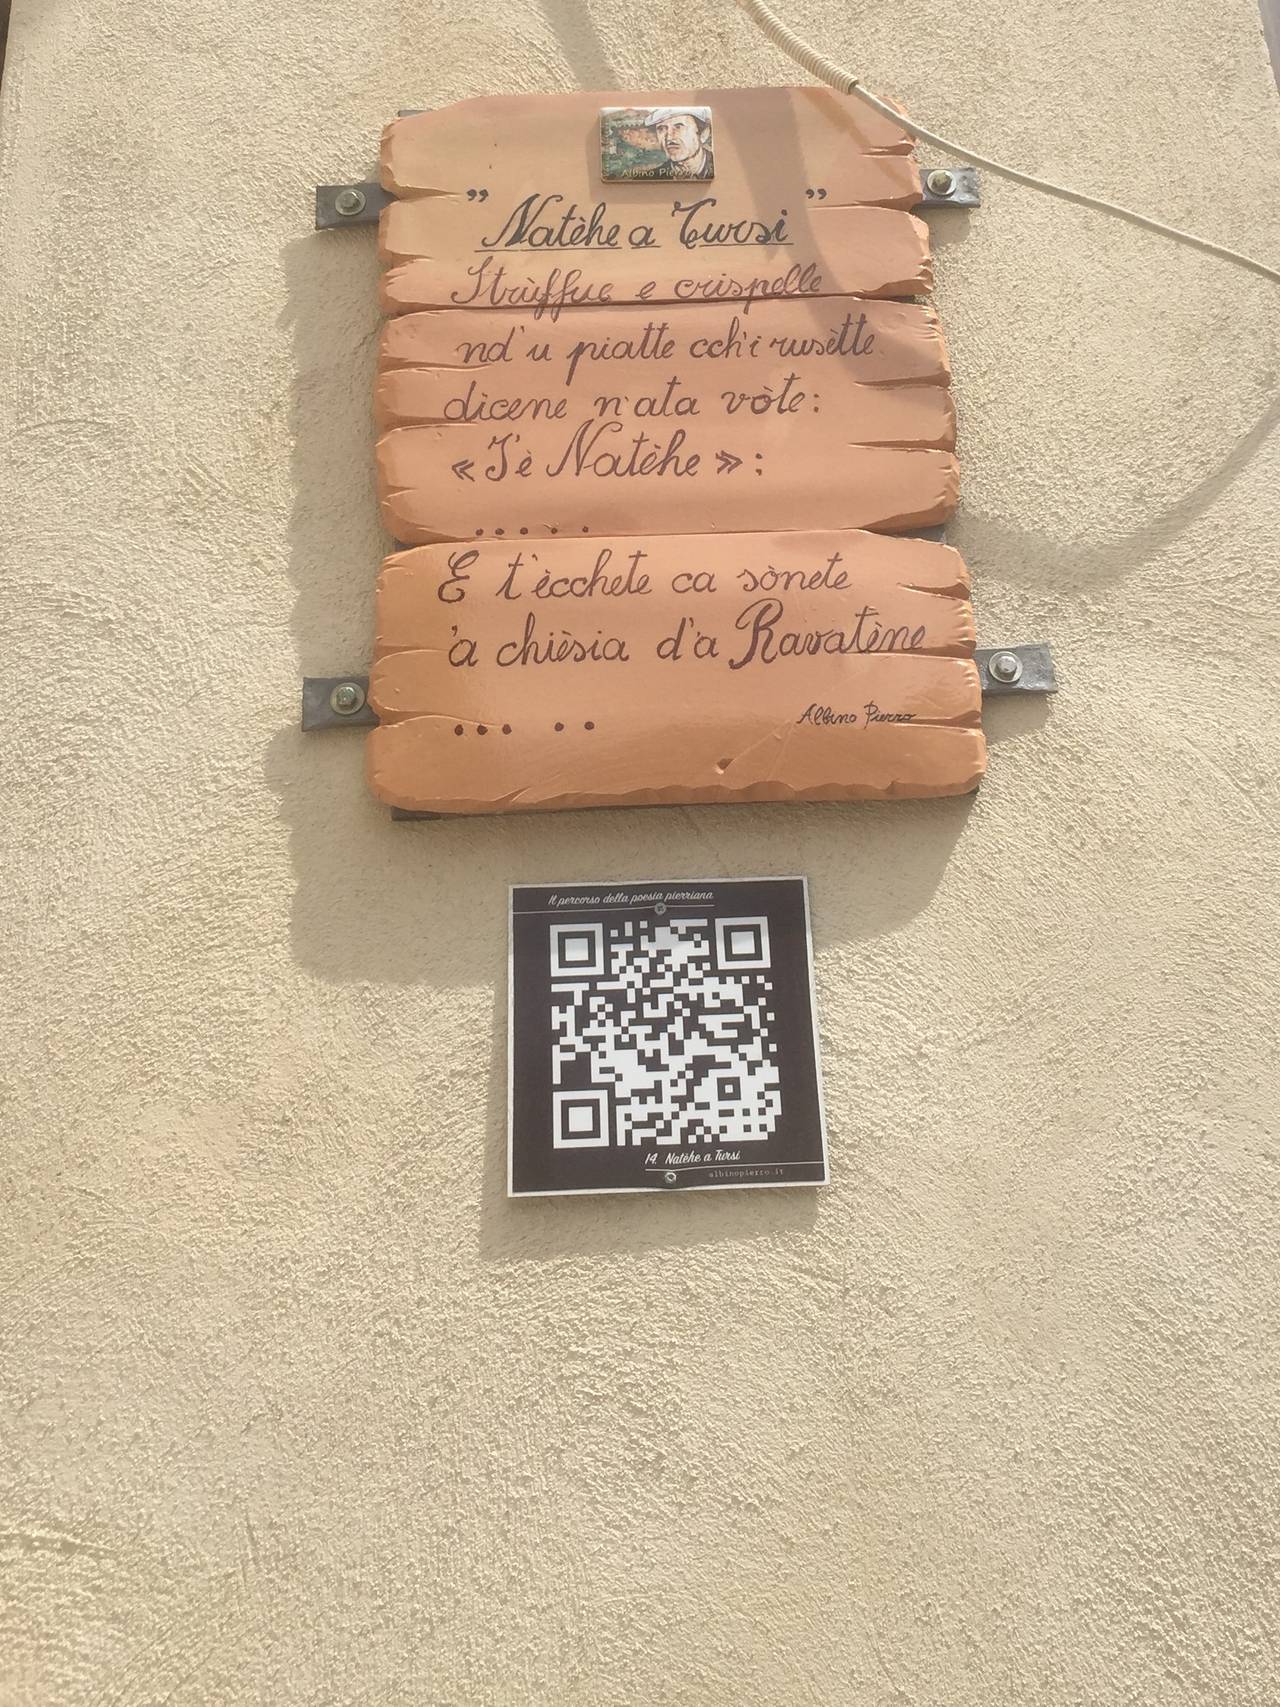 Albino Pierro
”Natèhe a Tursi”
Strùffue e crispelle
nd'u piatte cch'i rusètte
dicene n'ata vòte:
«J'è Natèhe»:
.....
E t'ècchete ca sònete
'a chièsia d'a Ravatène
... ..
Albino Pierro
Il percorso della poesia pierriana
14. Natèhe a Tursi
albinopierro.it